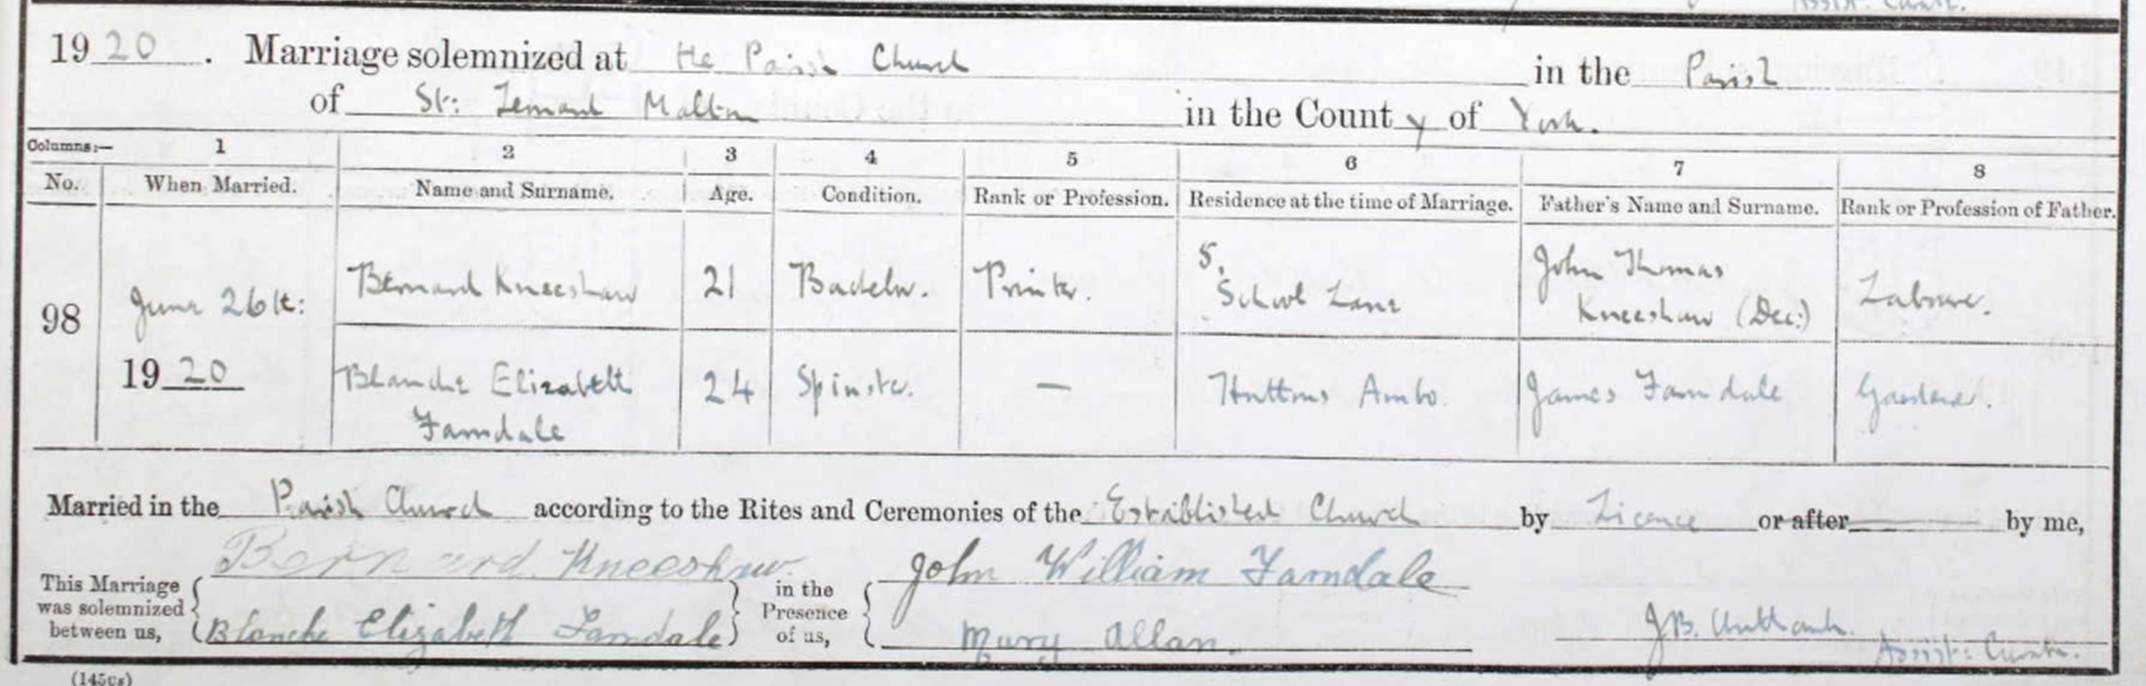 Assist: Curate.
1920. Marriage solemnized at the Parish Church in the Parish
of St: Lenard Malton in the County of York.
Columns:— 1 2 3 4 5 6 7 8
No. When Married. Name and Surname. Age. Condition. Rank or Profession. Residence at the time of Marriage. Father's Name and Surname. Rank or Profession of Father.
98 June 26th: 1920
Bernard Kneeshaw 21 Bachelor. Printer. 5, School Lane John Thomas Kneeshaw (Dec:) Labourer.
Blanche Elizabeth Farndale 24 Spinster. — Huttons Ambo. James Farndale Gardener.
Married in the Parish Church according to the Rites and Ceremonies of the Established Church by Licence or after by me,
Bernard Kneeshaw John William Farndale
This Marriage was solemnized between us, in the Presence of us,
Blanche Elizabeth Farndale Mary Allan.
J.B. Assist: Curate.
(145cs)